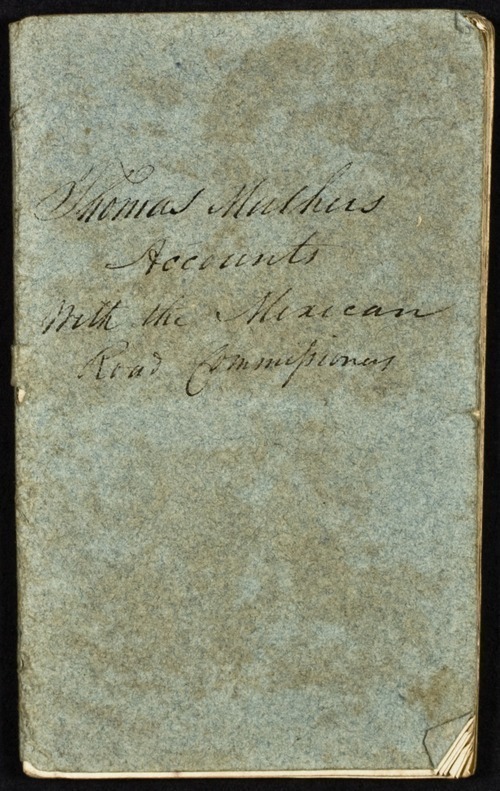 Thomas Mathers
Accounts
With the Mexican
Road Commissioners